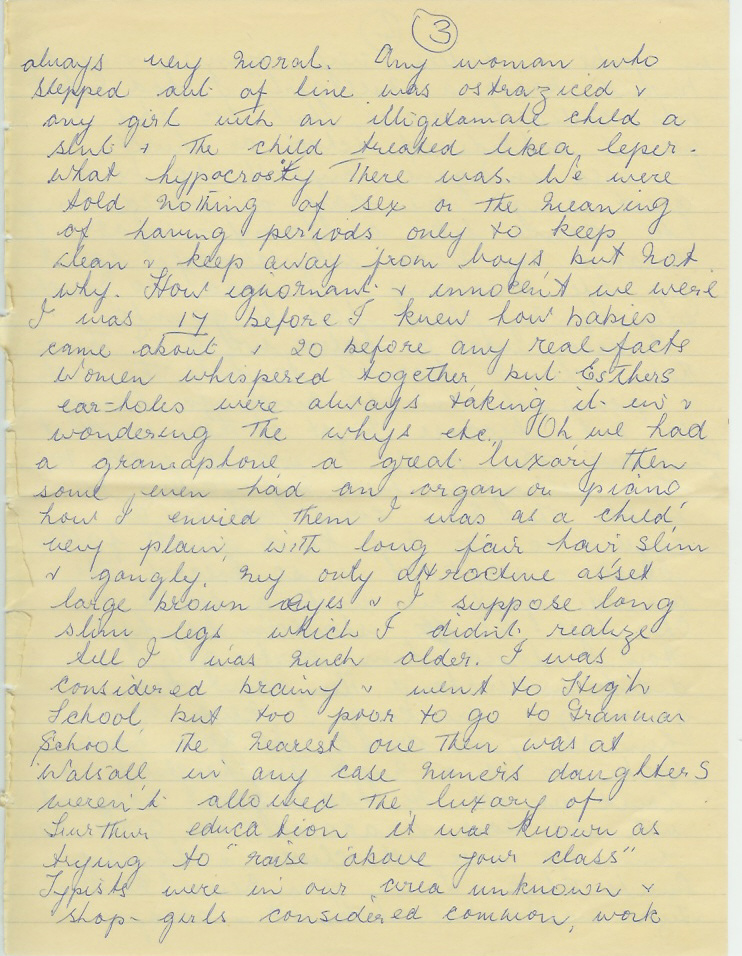 3
always very moral. Any woman who
stepped out of line was ostraziced &
any girl with an illigitamate child a
slut & the child treated like a leper.
what hypocrosity There was. We were
told nothing of sex or the meaning
of having periods only to keep
clean & keep away from boys but not
why. How ignornant & innocent we were
I was 17 before I knew how babies
came about & 20 before any real facts
Women whispered together, but Esthers
ear=holes were always taking it in &
wondering the whys etc., Oh we had
a gramaphone a great luxary then
some even had an organ or piano,
how I envied them I was as a child,
very plain, with long fair hair, slim
& gangly, my only attractive asset
large brown eyes & I suppose long
slim legs which I didn't realize
till I was much older. I was
considered brainy & went to High
School, but too poor to go to Grammar
School, the nearest one then was at
Walsall, in any case miners daughters
weren't allowed the luxary of
furthur education it was known as
trying to "raise above your class"
Typists were in our area unknown &
shop-girls considered common, work